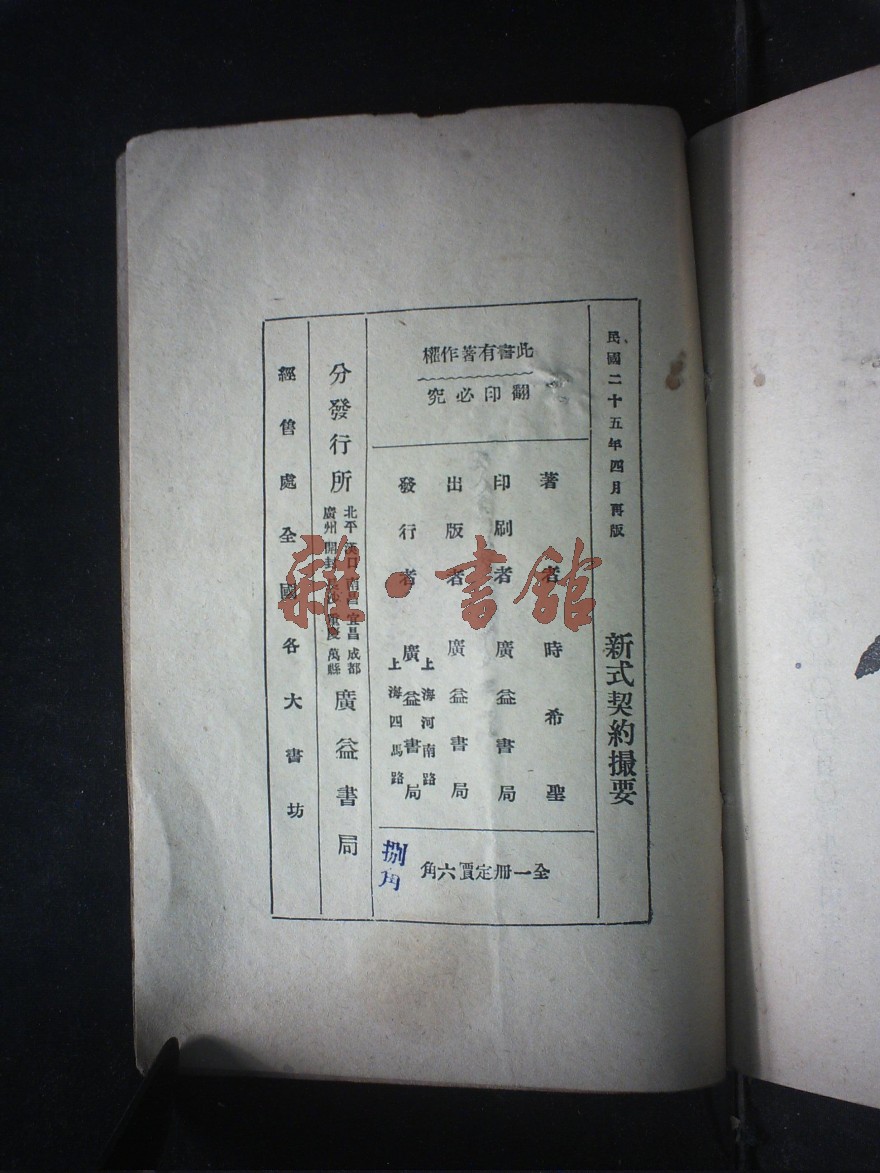 民國二十五年四月再版
新式契約撮要
此書有著作權
翻印必究
著者 時希聖
印刷者 廣益書局
出版者 廣益書局
發行者 廣益書局
上海河南路
上海四馬路
全一冊定價六角
捌角
分發行所
北平 漢口 南昌 宜昌 成都
廣州 開封 長沙 重慶 萬縣
廣益書局
經售處全國各大書坊
雜·書館